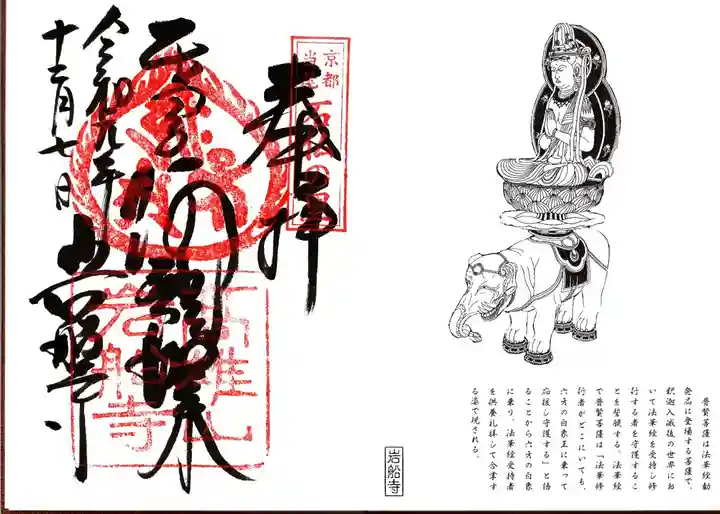 奉拝
令和元年
十二月七日
岩船寺
京都
岩船寺
普賢菩薩は法華経勧
発品に登場する菩薩で、
釈迦入滅後の世界にお
いて法華経を受持し修
行する者を守護するこ
とを誓願する。法華経
で普賢菩薩は「法華修
行者がどこにいても、
六牙の白象王に乗って
応援し守護する」と語
ることから六牙の白象
に乗り、法華経受持者
を供養礼拝して合掌す
る姿で現される。
岩船寺